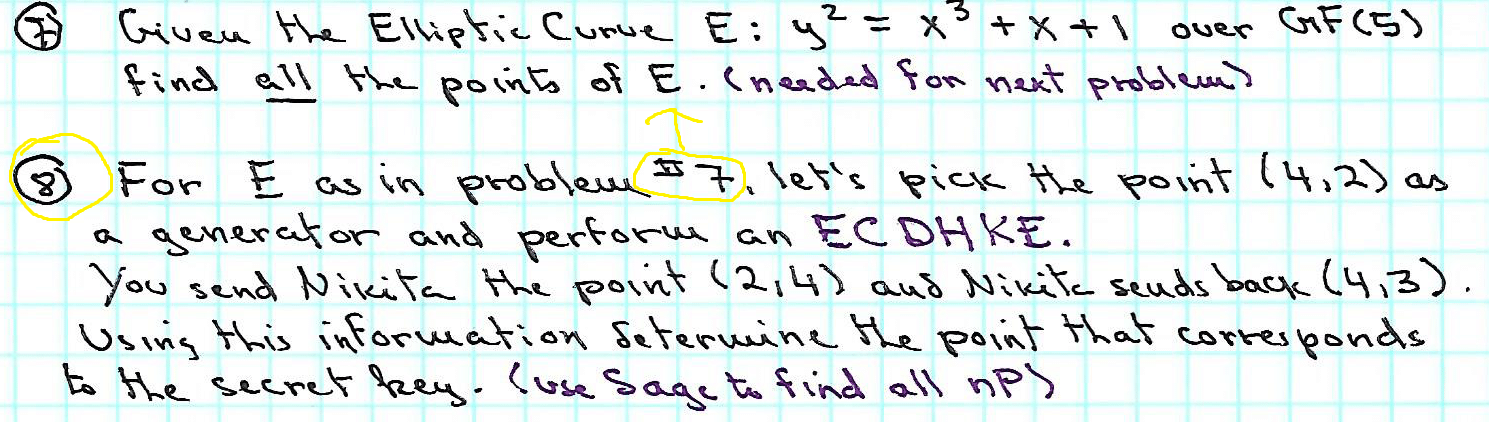 ⑦ Given the Elliptic Curve E: y² = x³ + x + 1 over GF(5)
find all the points of E. (needed for next problem)
⑧ For E as in problem #7, let's pick the point (4,2) as
a generator and perform an ECDHKE.
You send Nikita the point (2,4) and Nikita sends back (4,3).
Using this information determine the point that corresponds
to the secret key. (use Sage to find all nP)